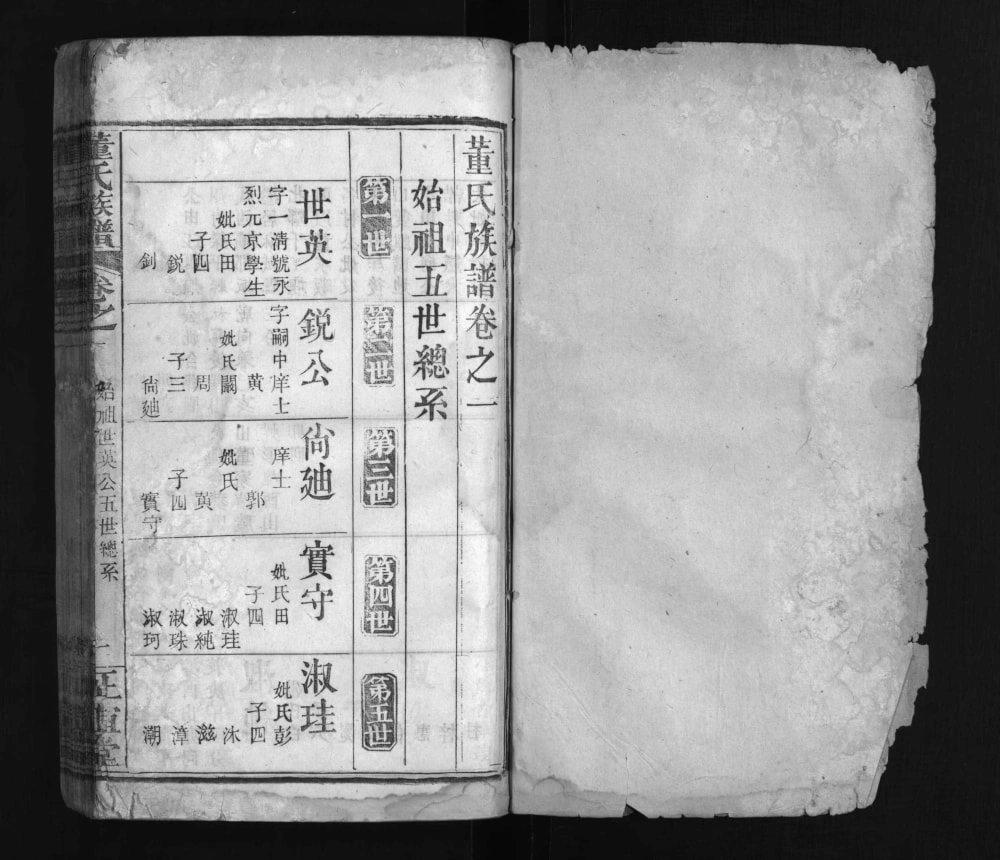 董氏族譜卷之一
始祖五世總系
第一世
第二世
第三世
第四世
第五世
世英
字一淸號永
烈元京學生
妣氏田
子四
鋭
釗
鋭公
字嗣中庠士
妣氏闞
黄
周
子三
尙廸
尙廸
庠士
妣氏
郭
黄
子四
實守
實守
妣氏田
子四
淑珪
淑純
淑珠
淑珂
淑珪
妣氏彭
子四
沐
滋
漳
潮
董氏族譜
卷之一
始祖世英公五世總系
一